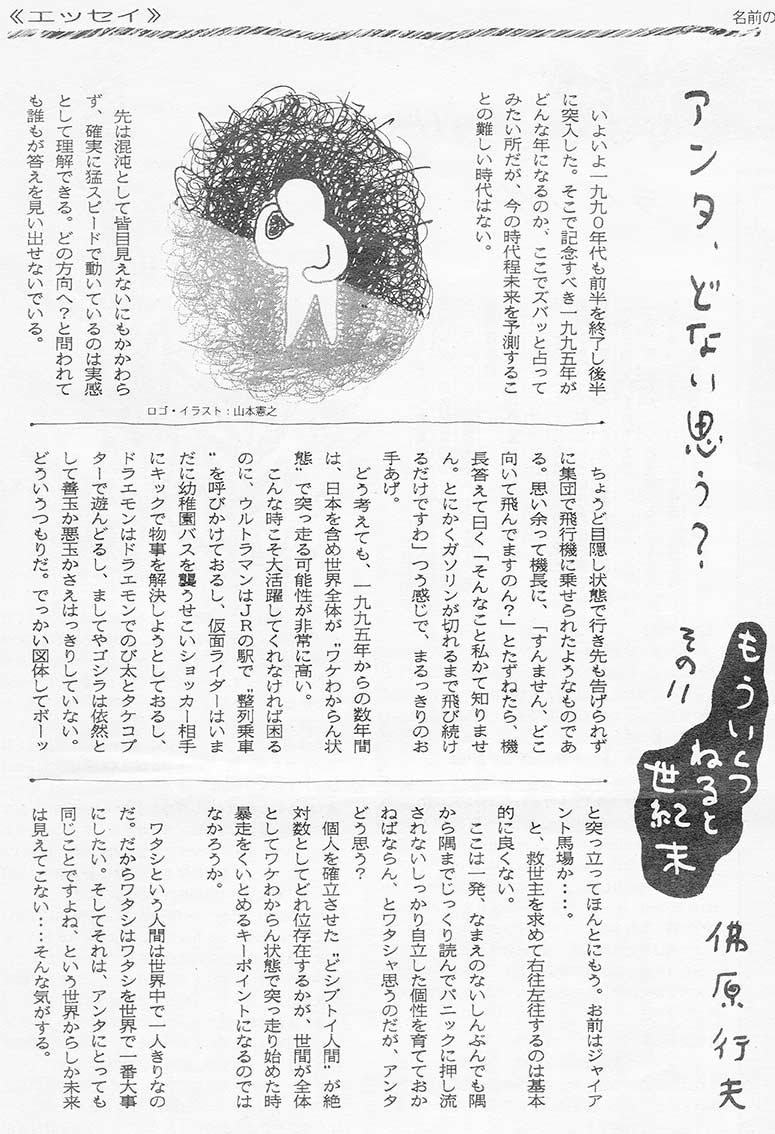 《エッセイ》
名前の
アンタ、どない思う?
その11
もういくつ
ねると
世紀末
佛原行夫
いよいよ一九九〇年代も前半を終了し後半
に突入した。そこで記念すべき一九九五年が
どんな年になるのか、ここでズバッと占って
みたい所だが、今の時代程未来を予測するこ
との難しい時代はない。
先は混沌として皆目見えないにもかかわら
ず、確実に猛スピードで動いているのは実感
として理解できる。どの方向へ?と問われて
も誰もが答えを見い出せないでいる。
ロゴ・イラスト:山本憲之
ちょうど目隠し状態で行き先も告げられず
に集団で飛行機に乗せられたようなものであ
る。思い余って機長に、「すんません、どこ
向いて飛んでますのん?」とたずねたら、機
長答えて曰く「そんなこと私かて知りませ
ん。とにかくガソリンが切れるまで飛び続け
るだけですわ」つう感じで、まるっきりのお
手あげ。
どう考えても、一九九五年からの数年間
は、日本を含め世界全体が〝ワケわからん状
態〟で突っ走る可能性が非常に高い。
こんな時こそ大活躍してくれなければ困る
のに、ウルトラマンはJRの駅で〝整列乗車
〟を呼びかけておるし、仮面ライダーはいま
だに幼稚園バスを襲うせこいショッカー相手
にキックで物事を解決しようとしておるし、
ドラエモンはドラエモンでのび太とタケコプ
ターで遊んどるし、ましてやゴジラは依然と
して善玉か悪玉かさえはっきりしていない。
どういうつもりだ。でっかい図体してボーッ
と突っ立ってほんとにもう。お前はジャイア
ント馬場か・・・・。
と、救世主を求めて右往左往するのは基本
的に良くない。
ここは一発、なまえのないしんぶんでも隅
から隅までじっくり読んでパニックに押し流
されないしっかり自立した個性を育てておか
ねばならん、とワタシャ思うのだが、アンタ
どう思う?
個人を確立させた〝どシブトイ人間〟が絶
対数としてどれ位存在するかが、世間が全体
としてワケわからん状態で突っ走り始めた時
暴走をくいとめるキーポイントになるのでは
なかろうか。
ワタシという人間は世界中で一人きりなの
だ。だからワタシはワタシを世界で一番大事
にしたい。そしてそれは、アンタにとっても
同じことですよね、という世界からしか未来
は見えてこない・・・そんな気がする。